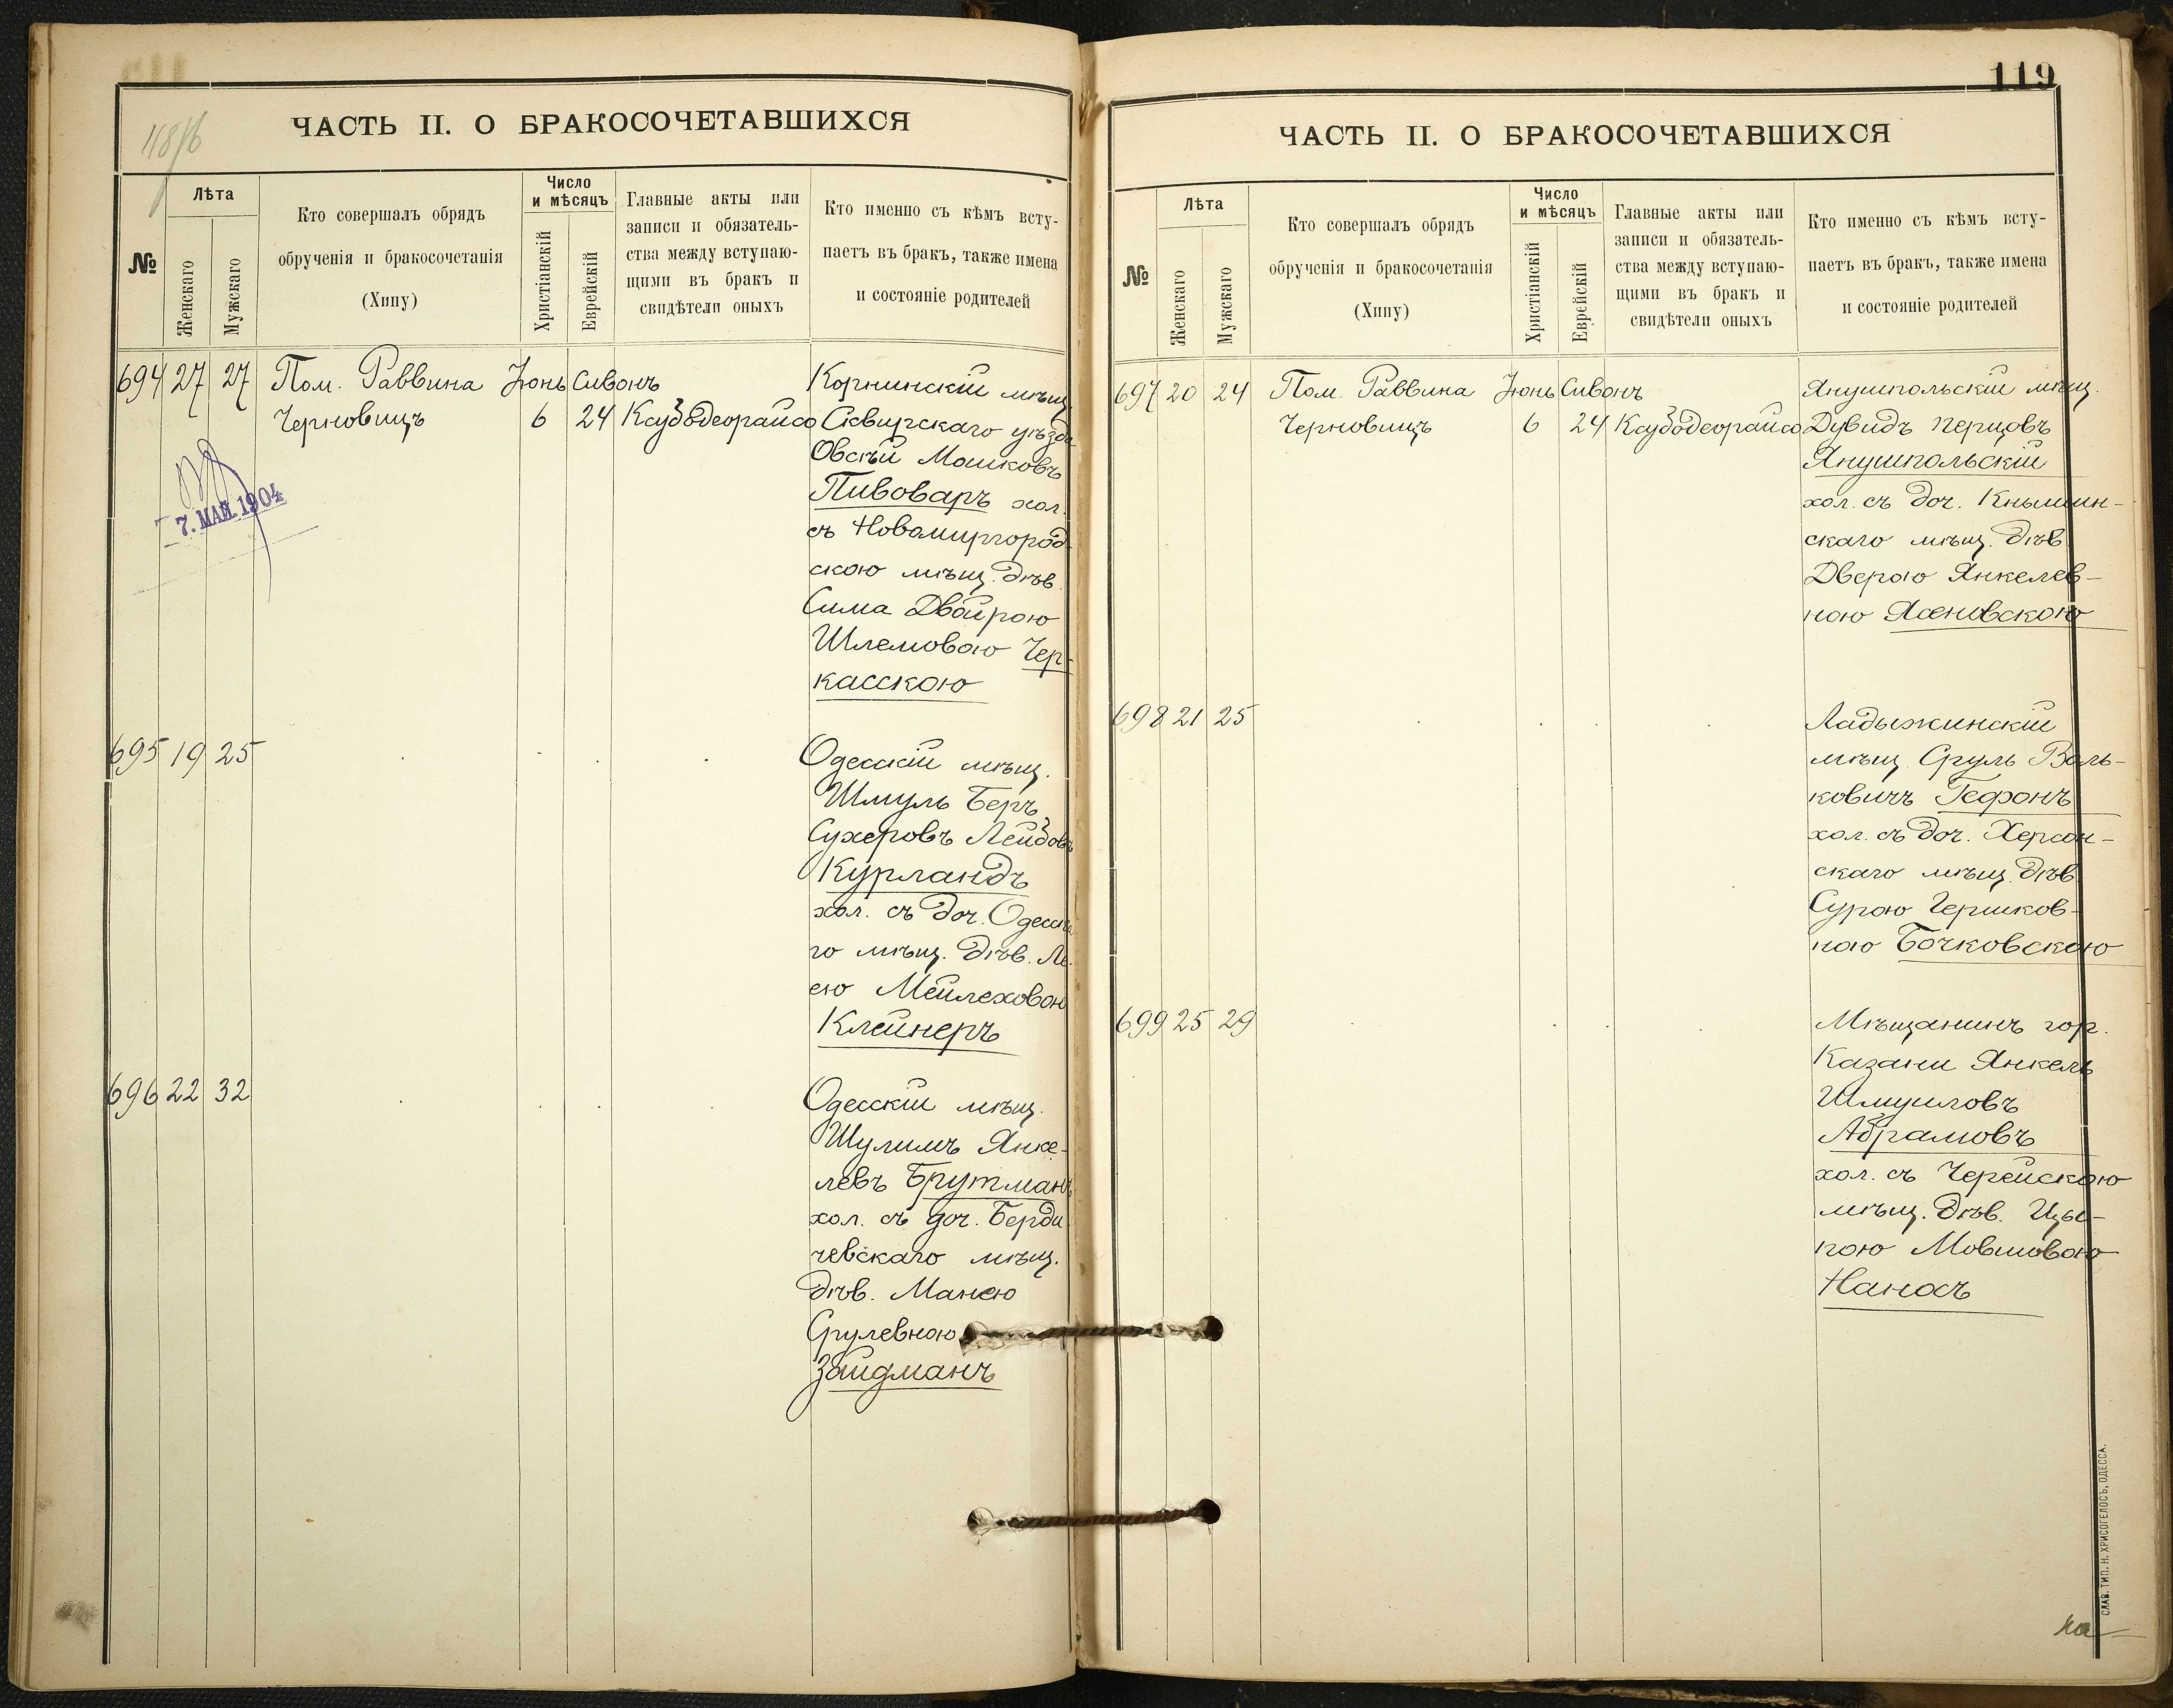 ЧАСТЬ II. О БРАКОСОЧЕТАВШИХСЯ
№
Лѣта
Женскаго
Мужскаго
Кто совершалъ обрядъ
обрученія и бракосочетанія
(Хипу)
Число
и мѣсяцъ
Христіанскій
Еврейскій
Главные акты или
записи и обязатель-
ства между вступаю-
щими въ бракъ и
свидѣтели оныхъ
Кто именно съ кѣмъ всту-
паетъ въ бракъ, также имена
и состояніе родителей
694 27 27 Пом. Раввина Іюнь Сивонъ
Черновицъ 6 24 Ксубодеорайсо
Корнинскій мѣщ.
Сквирскаго уѣзда
Овсѣй Мошковъ
Пивоваръ хол.
съ Новомиргород
скою мѣщ. дѣв.
Сима Двойрою
Шлемовою Чер-
касскою
7. МАЙ. 1904
695 19 25
Одесскій мѣщ.
Шмуль Беръ
Сухеровъ Лейбовъ
Курландъ
хол. съ доч. Одесска
го мѣщ. дѣв. Ле-
ею Мейлеховою
Клейнеръ
696 22 32
Одесскій мѣщ.
Шулимъ Янке-
левъ Брутманъ
хол. съ доч. Берди
чевскаго мѣщ.
дѣв. Манею
Срулевною
Зайдманъ
119
ЧАСТЬ II. О БРАКОСОЧЕТАВШИХСЯ
№
Лѣта
Женскаго
Мужскаго
Кто совершалъ обрядъ
обрученія и бракосочетанія
(Хипу)
Число
и мѣсяцъ
Христіанскій
Еврейскій
Главные акты или
записи и обязатель-
ства между вступаю-
щими въ бракъ и
свидѣтели оныхъ
Кто именно съ кѣмъ всту-
паетъ въ бракъ, также имена
и состояніе родителей
697 20 24 Пом. Раввина Іюнь Сивонъ
Черновицъ 6 24 Ксубодеорайсо
Янушпольскій мѣщ.
Дувидъ Перцовъ
Янушпольскій
хол. съ доч. Кнышин-
скаго мѣщ. дѣв.
Дверою Янкелев-
ною Ясеновскою
698 21 25
Ладыжинскій
мѣщ. Сруль Воль-
ковичъ Гефонъ
хол. съ доч. Херсон-
скаго мѣщ. дѣв.
Сурою Гершков-
ною Бочковскою
699 25 29
Мѣщанинъ гор.
Казани Янкель
Шмуиловъ
Абрамовъ
хол. съ Черейскою
мѣщ. дѣв. Цы-
пою Мовшовою
Наносъ
СЛАВ. ТИП. Н. ХРИСОГЕЛОСЪ, ОДЕССА.